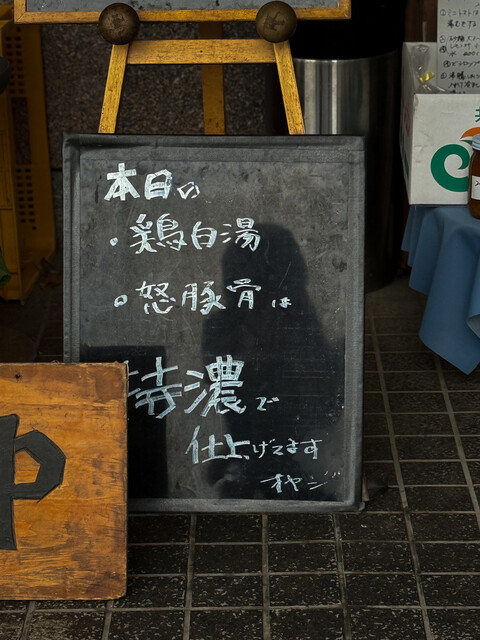 本日の
・鶏白湯
・怒豚骨は
特濃で
仕上げてます
オヤジ